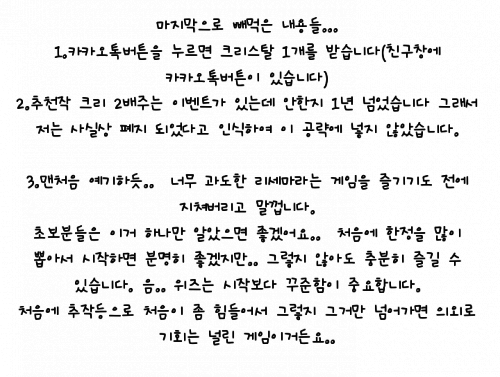 마지막으로 빼먹은 내용들...
1.카카오톡버튼을 누르면 크리스탈 1개를 받습니다(친구창에
카카오톡버튼이 있습니다)
2.추천작 크리 2배주는 이벤트가 있는데 안한지 1년 넘었습니다 그래서
저는 사실상 폐지 되었다고 인식하여 이 공략에 넣지 않았습니다.
3.맨처음 얘기하듯.. 너무 과도한 리세마라는 게임을 즐기기도 전에
지쳐버리고 말껍니다.
초보분들은 이거 하나만 알았으면 좋겠어요.. 처음에 한정을 많이
뽑아서 시작하면 분명히 좋겠지만.. 그렇지 않아도 충분히 즐길 수
있습니다. 음.. 위즈는 시작보다 꾸준함이 중요합니다.
처음에 추작등으로 처음이 좀 힘들어서 그렇지 그거만 넘어가면 의외로
기회는 널린 게임이거든요..